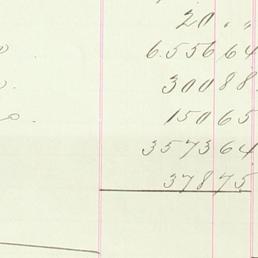 20 〃 〃
6.556 64
300 88
150 65
3573 64
378 75